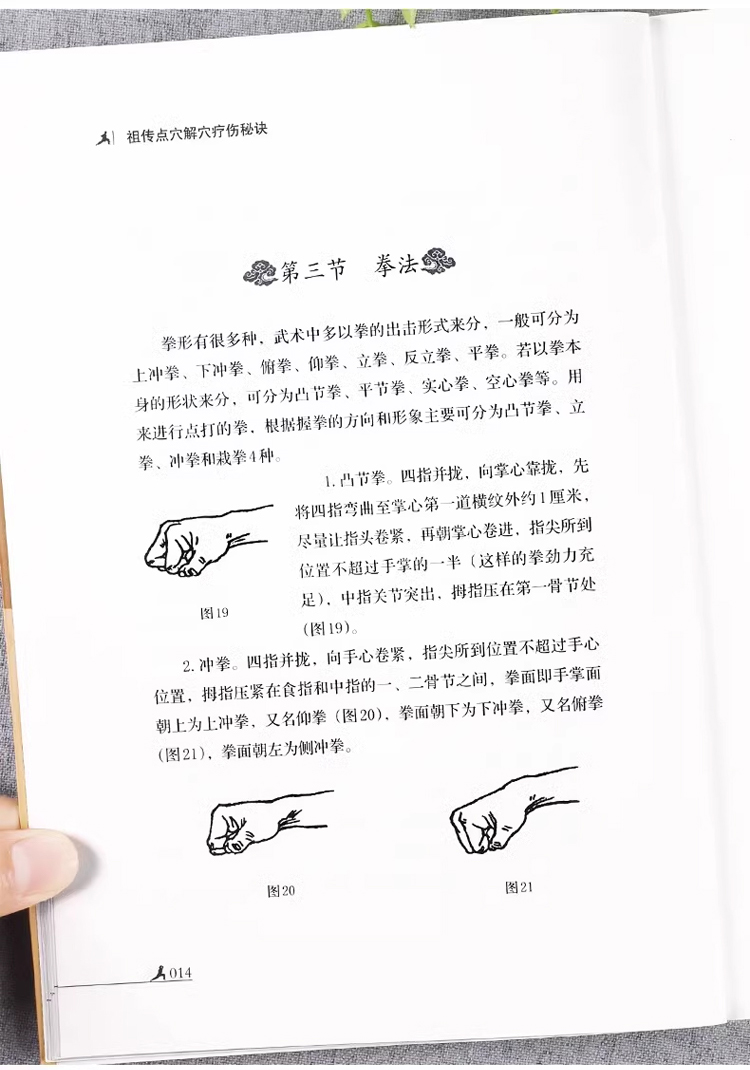 祖传点穴解穴疗伤秘诀
第三节 拳法
拳形有很多种，武术中多以拳的出击形式来分，一般可分为
上冲拳、下冲拳、俯拳、仰拳、立拳、反立拳、平拳。若以拳本
身的形状来分，可分为凸节拳、平节拳、实心拳、空心拳等。用
来进行点打的拳，根据握拳的方向和形象主要可分为凸节拳、立
拳、冲拳和栽拳4种。
1. 凸节拳。四指并拢，向掌心靠拢，先
将四指弯曲至掌心第一道横纹外约1厘米，
尽量让指头卷紧，再朝掌心卷进，指尖所到
位置不超过手掌的一半（这样的拳劲力充
足），中指关节突出，拇指压在第一骨节处
（图19）。
图19
2. 冲拳。四指并拢，向手心卷紧，指尖所到位置不超过手心
位置，拇指压紧在食指和中指的一、二骨节之间，拳面即手掌面
朝上为上冲拳，又名仰拳（图20），拳面朝下为下冲拳，又名俯拳
（图21），拳面朝左为侧冲拳。
图20
图21
014